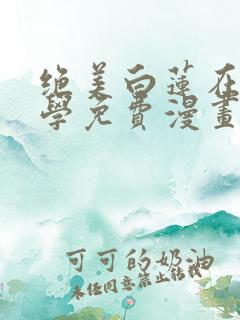 绝美白莲在
學免費漫畫
可可的奶油
未经同意禁止转载